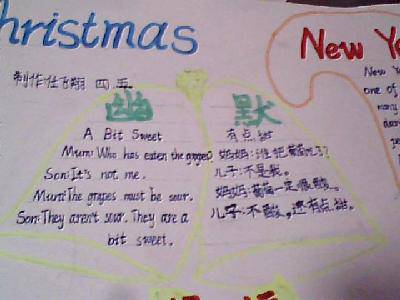 hristmas
New Ye
制作任飞翔 四 五
幽 默
New Ye
one of
many
A Bit Sweet
Mum: Who has eaten the grapes?
Son: It's not me.
Mum: The grapes must be sour.
Son: They aren't sour. They are a
bit sweet.
有点甜
妈妈:谁把葡萄吃了?
儿子:不是我。
妈妈:葡萄一定很酸。
儿子:不酸,还有点甜。